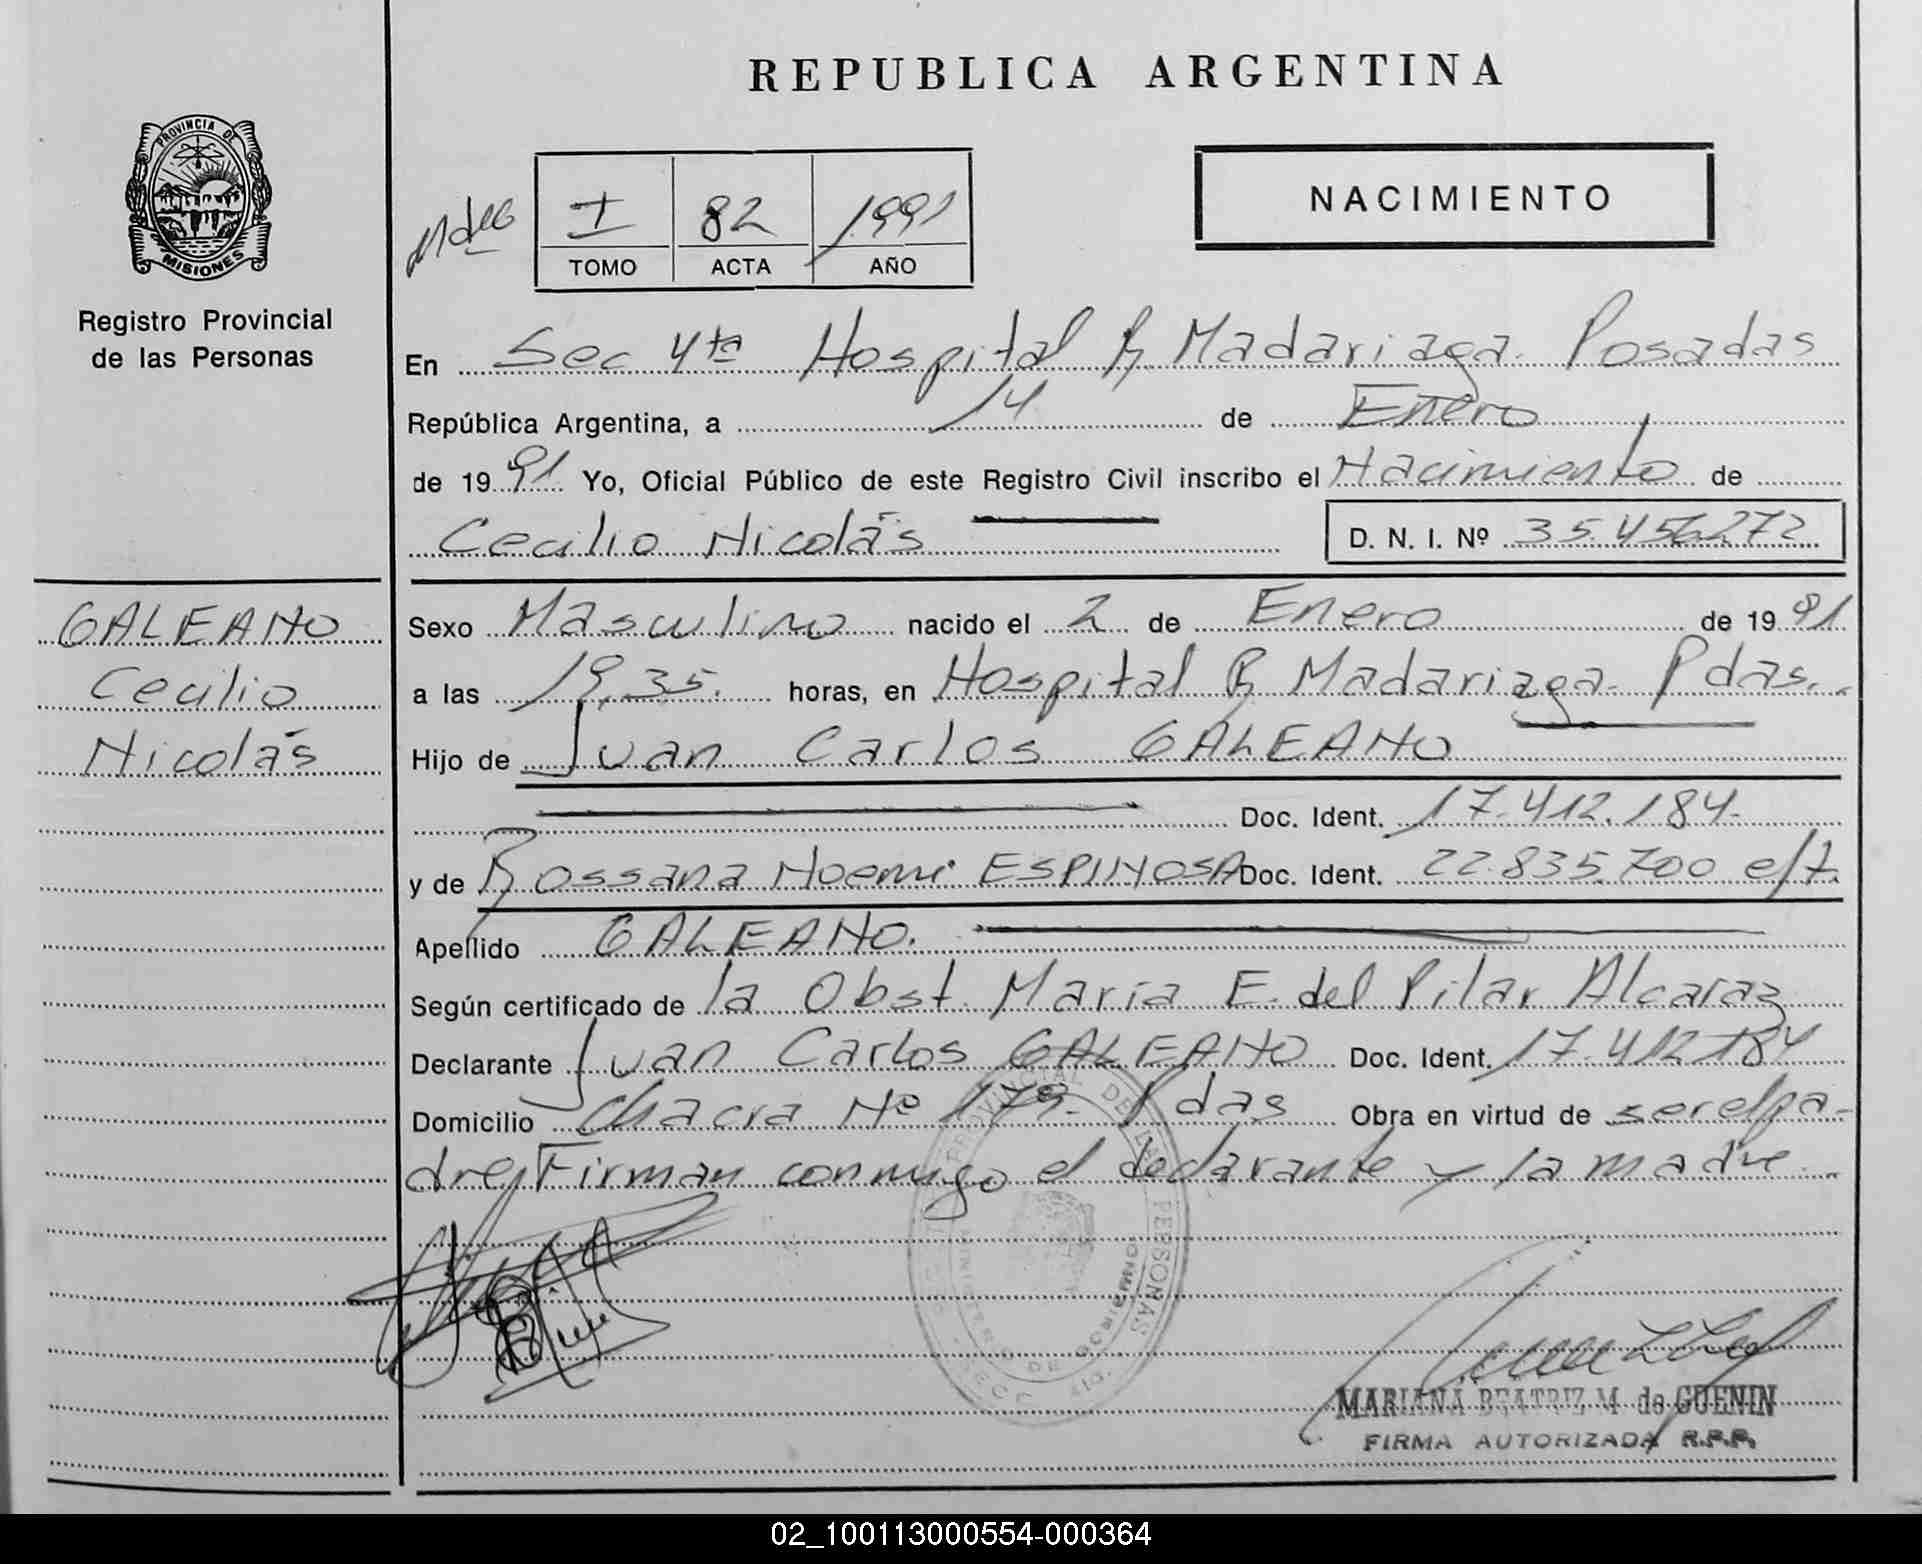 REPUBLICA ARGENTINA
PROVINCIA DE
MISIONES
Registro Provincial
de las Personas
I 82 1991
TOMO ACTA AÑO
NACIMIENTO
En Sec 4ta Hospital R. Madariaga. Posadas
República Argentina, a 14 de Enero
de 1991 Yo, Oficial Público de este Registro Civil inscribo el Nacimiento de
Cecilio Nicolás D. N. I. Nº 35.456.272
GALEANO
Cecilio
Nicolás
Sexo Masculino nacido el 2 de Enero de 1991
a las 19,35. horas, en Hospital R. Madariaga. Pdas.
Hijo de Juan Carlos GALEANO
Doc. Ident. 17.412.184.
y de Rossana Noemi ESPINOSA Doc. Ident. 22.835.700 e/t.
Apellido GALEANO.
Según certificado de la Obst. María E. del Pilar Alcaraz
Declarante Juan Carlos GALEANO Doc. Ident. 17.412.184
Domicilio Chacra Nº 179. Pdas Obra en virtud de ser el pa-
dre, Firman conmigo el declarante y la madre
PROVINCIAL DE LAS PERSONAS
MINISTERIO DE GOBIERNO
SECC. 4ta.
MARIANA BEATRIZ M. de GUENIN
FIRMA AUTORIZADA R.P.P.
02_100113000554-000364